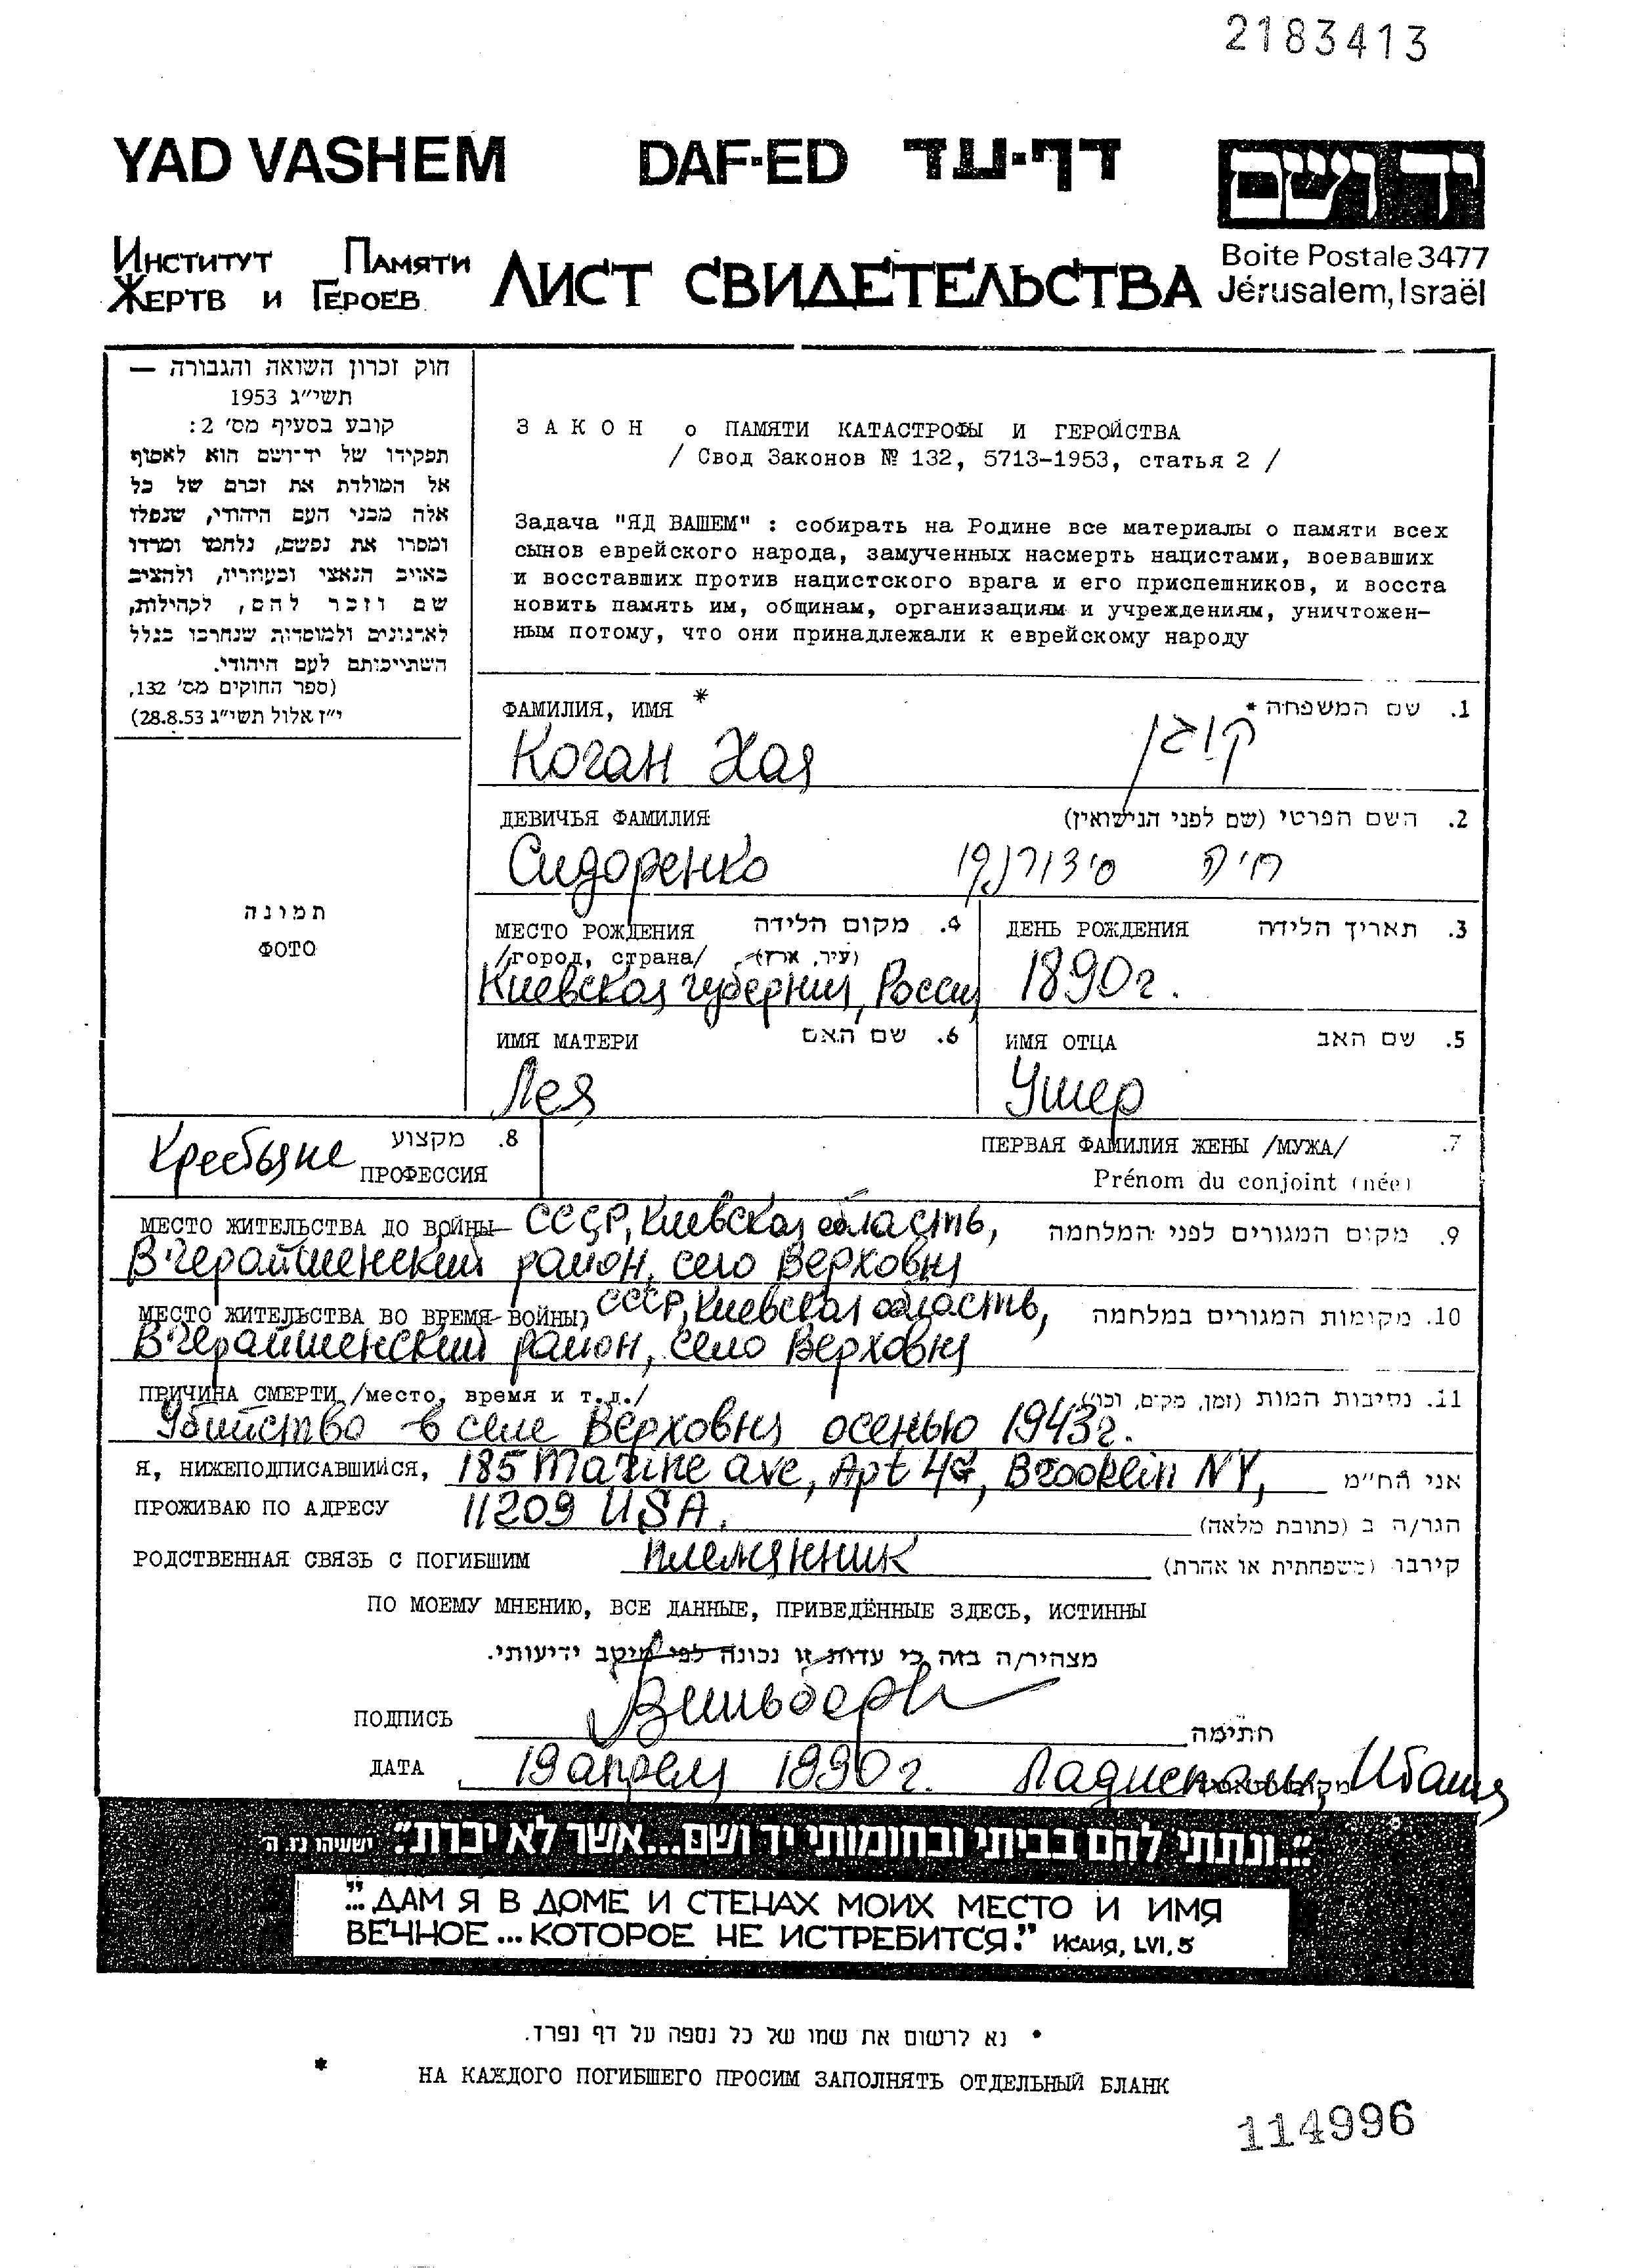 2183413
YAD VASHEM DAF-ED דף-עד יד ושם
Институт Памяти
Жертв и Героев
ЛИСТ СВИДЕТЕЛЬСТВА
Boite Postale 3477
Jérusalem, Israël
חוק זכרון השואה והגבורה —
תשי״ג 1953
קובע בסעיף מס׳ 2:
תפקידו של יד-ושם הוא לאסוף
אל המולדת את זכרם של כל
אלה מבני העם היהודי, שנפלו
ומסרו את נפשם, נלחמו ומרדו
באויב הנאצי ובעוזריו, ולהציב
שם וזכר להם, לקהילות,
לארגונים ולמוסדות שנחרבו בגלל
השתייכותם לעם היהודי.
(ספר החוקים מס׳ 132,
י״ז אלול תשי״ג 28.8.53)
ЗАКОН о ПАМЯТИ КАТАСТРОФЫ И ГЕРОЙСТВА
/ Свод Законов № 132, 5713-1953, статья 2 /
Задача "ЯД ВАШЕМ" : собирать на Родине все материалы о памяти всех
сынов еврейского народа, замученных насмерть нацистами, воевавших
и восставших против нацистского врага и его приспешников, и восста
новить память им, общинам, организациям и учреждениям, уничтожен-
ным потому, что они принадлежали к еврейскому народу
ФАМИЛИЯ, ИМЯ * 1. שם המשפחה *
Коган Хая קוגן
ДЕВИЧЬЯ ФАМИЛИЯ 2. השם הפרטי (שם לפני הנישואין)
Сидоренко חיה סידורנקו
МЕСТО РОЖДЕНИЯ 4. מקום הלידה
/город, страна/ (עיר, ארץ)
Киевская губерния, Россия
ДЕНЬ РОЖДЕНИЯ 3. תאריך הלידה
1890г.
ИМЯ МАТЕРИ 6. שם האם
Лея
ИМЯ ОТЦА 5. שם האב
Ушер
תמונה
ФОТО
8. מקצוע
Крестьяне ПРОФЕССИЯ
ПЕРВАЯ ФАМИЛИЯ ЖЕНЫ /МУЖА/ 7.
Prénom du conjoint (née)
МЕСТО ЖИТЕЛЬСТВА ДО ВОЙНЫ СССР, Киевская область, 9. מקום המגורים לפני המלחמה
Вчерайшенский район, село Верховня
МЕСТО ЖИТЕЛЬСТВА ВО ВРЕМЯ ВОЙНЫ СССР, Киевская область, 10. מקומות המגורים במלחמה
Вчерайшенский район, село Верховня
ПРИЧИНА СМЕРТИ /место, время и т.д./ 11. נסיבות המות (זמן, מקום, וכו׳)
Убийство в селе Верховня осенью 1943г.
Я, НИЖЕПОДПИСАВШИЙСЯ, 185 Marine ave, Apt 4G, Brooklin NY, אני הח״מ
ПРОЖИВАЮ ПО АДРЕСУ 11209 USA. הגר/ה ב (כתובת מלאה)
РОДСТВЕННАЯ СВЯЗЬ С ПОГИБШИМ племянник קירבה (משפחתית או אחרת)
ПО МОЕМУ МНЕНИЮ, ВСЕ ДАННЫЕ, ПРИВЕДЁННЫЕ ЗДЕСЬ, ИСТИННЫ
מצהיר/ה בזה כי עדות זו נכונה לפי מיטב ידיעותי.
ПОДПИСЬ חתימה
ДАТА 19 апреля 1990г. Ладисполи, Италия
"...ונתתי להם בביתי ובחומותי יד ושם...אשר לא יכרת". ישעיהו נו, ה
"...ДАМ Я В ДОМЕ И СТЕНАХ МОИХ МЕСТО И ИМЯ
ВЕЧНОЕ...КОТОРОЕ НЕ ИСТРЕБИТСЯ." ИСАИЯ, LVI, 5
* נא לרשום את שמו של כל נספה על דף נפרד.
* НА КАЖДОГО ПОГИБШЕГО ПРОСИМ ЗАПОЛНЯТЬ ОТДЕЛЬНЫЙ БЛАНК
114996